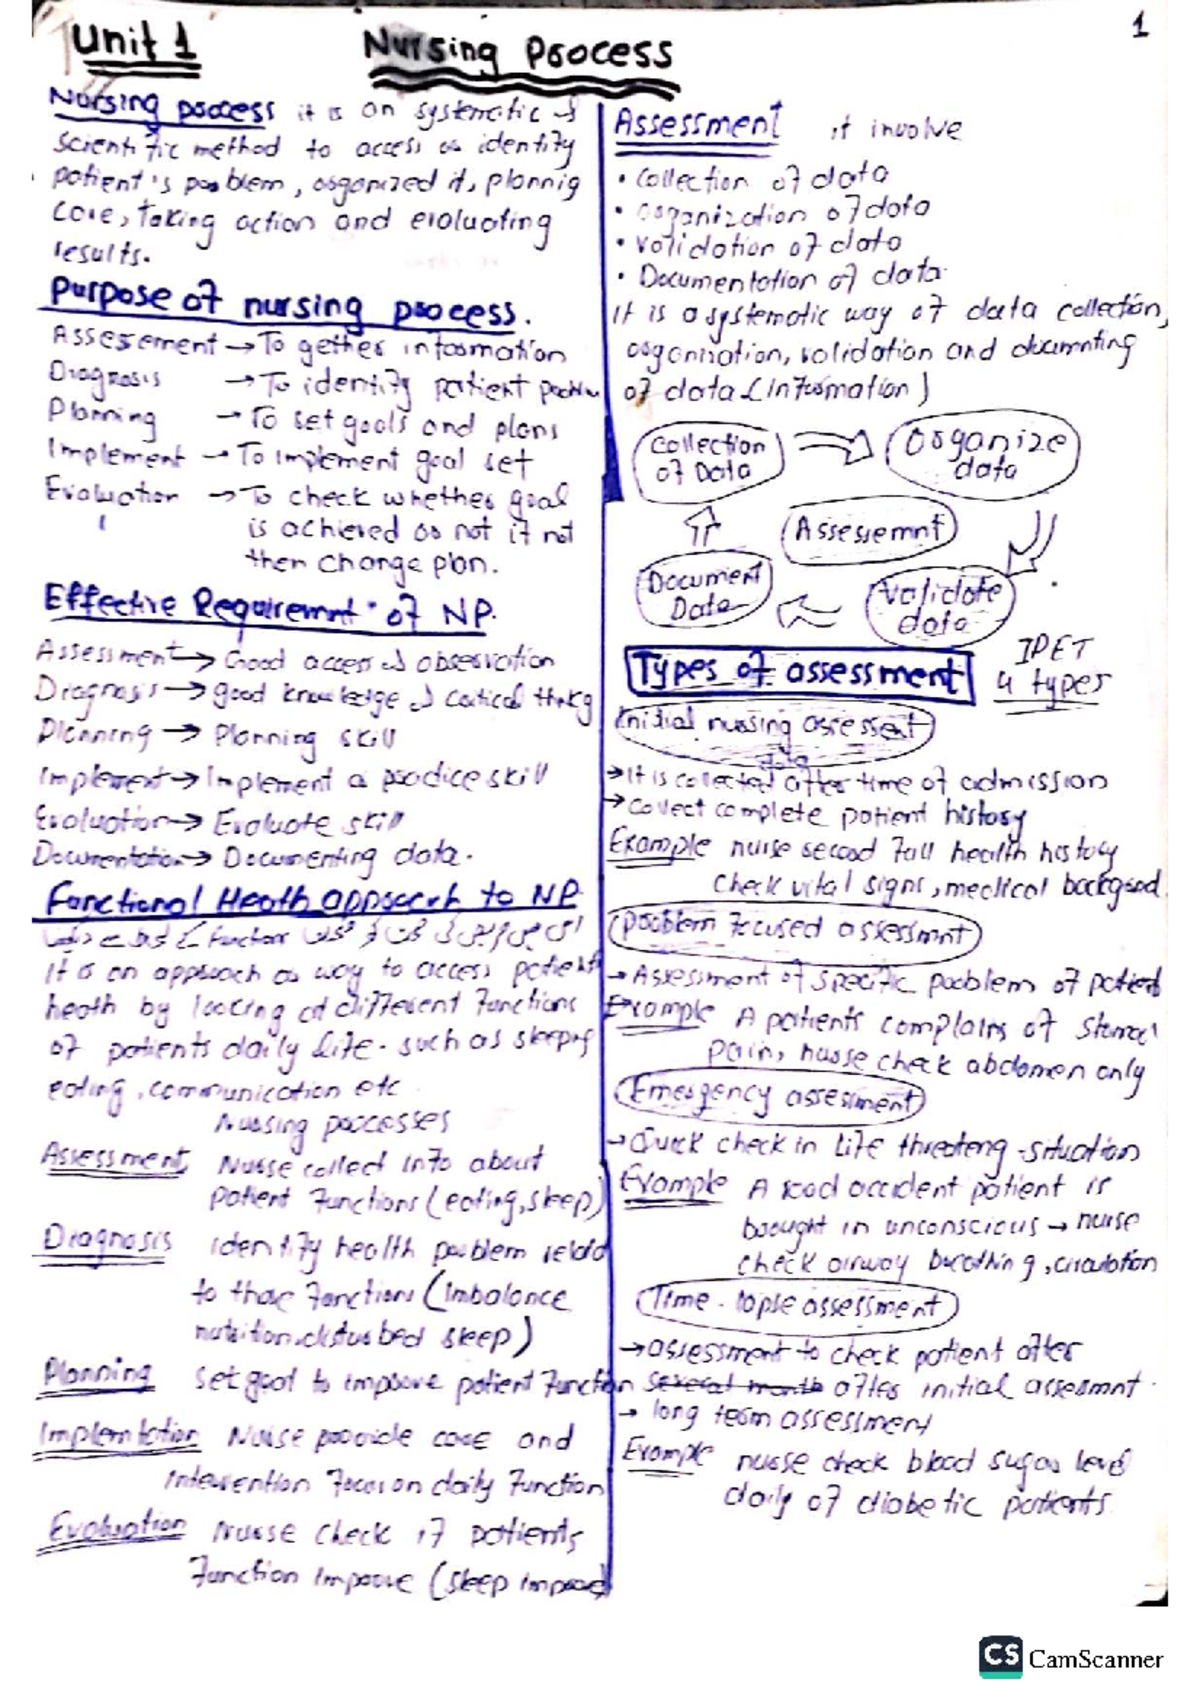 1
Unit 1
Nursing Process
Nursing process it is an systematic &
Scientific method to access or identify
patient's problem, organized it, plannig
Care, Taking action and evaluating
results.
Purpose of nursing process.
Assessment → To gether information
Diagnosis → To identify patient problm
Planning → To set goals and plans
Implement → To implement goal set
Evaluation → To check whether goal
is achieved or not if not
then change plan.
Effective Requiremnt of NP.
Assessment → Good access & observation
Diagnosis → good knowledge & critical
Planning → Planning skill
Implement → Implement a practice skill
Evaluation → Evaluate skill
Documentation → Documenting data.
Functional Heath approach to NP
function
It is an approach or way to access patient
heath by looking at different functions
of patients daily life. such as sleeping
eating, communication etc
Nursing processes
Assessment Nurse collect info about
patient functions (eating, sleep)
Diagnosis identify health problem
to functions (imbalance
nutrition, disturbed sleep)
Planning Set goal to improve patient function
Nurse provide care and
intervention focus on daily function
Evaluation Nurse check if patients
function improve (sleep improve)
Assessment it involve
• Collection of data
• organization of data
• validation of data
• Documentation of data
it is a systematic way of data collection,
organization, validation and documnting
of data (information)
Collection
of Data
Organize
data
Assessemnt
Document
Data
Validate
data
IPET
Types of assessment
4 types
Initial nursing
→ It is collected after time of admission
→ collect complete patient history
Example nurse record full health history
check vital signs, medical
Problem focused assessmnt
→ Assessment of specific problem of patient
Example A patients complains of
pain, nurse check abdomen only
Emergency assessment
→ Quick check in life situation
Example A road accident patient is
brought in unconscious → nurse
check airway breathing, circulation
Time - lapse assessment
→ assessment to check patient after
several month after initial assesmnt.
→ long term assessment
Example nurse check blood sugar level
daily of diabetic patients
CS CamScanner